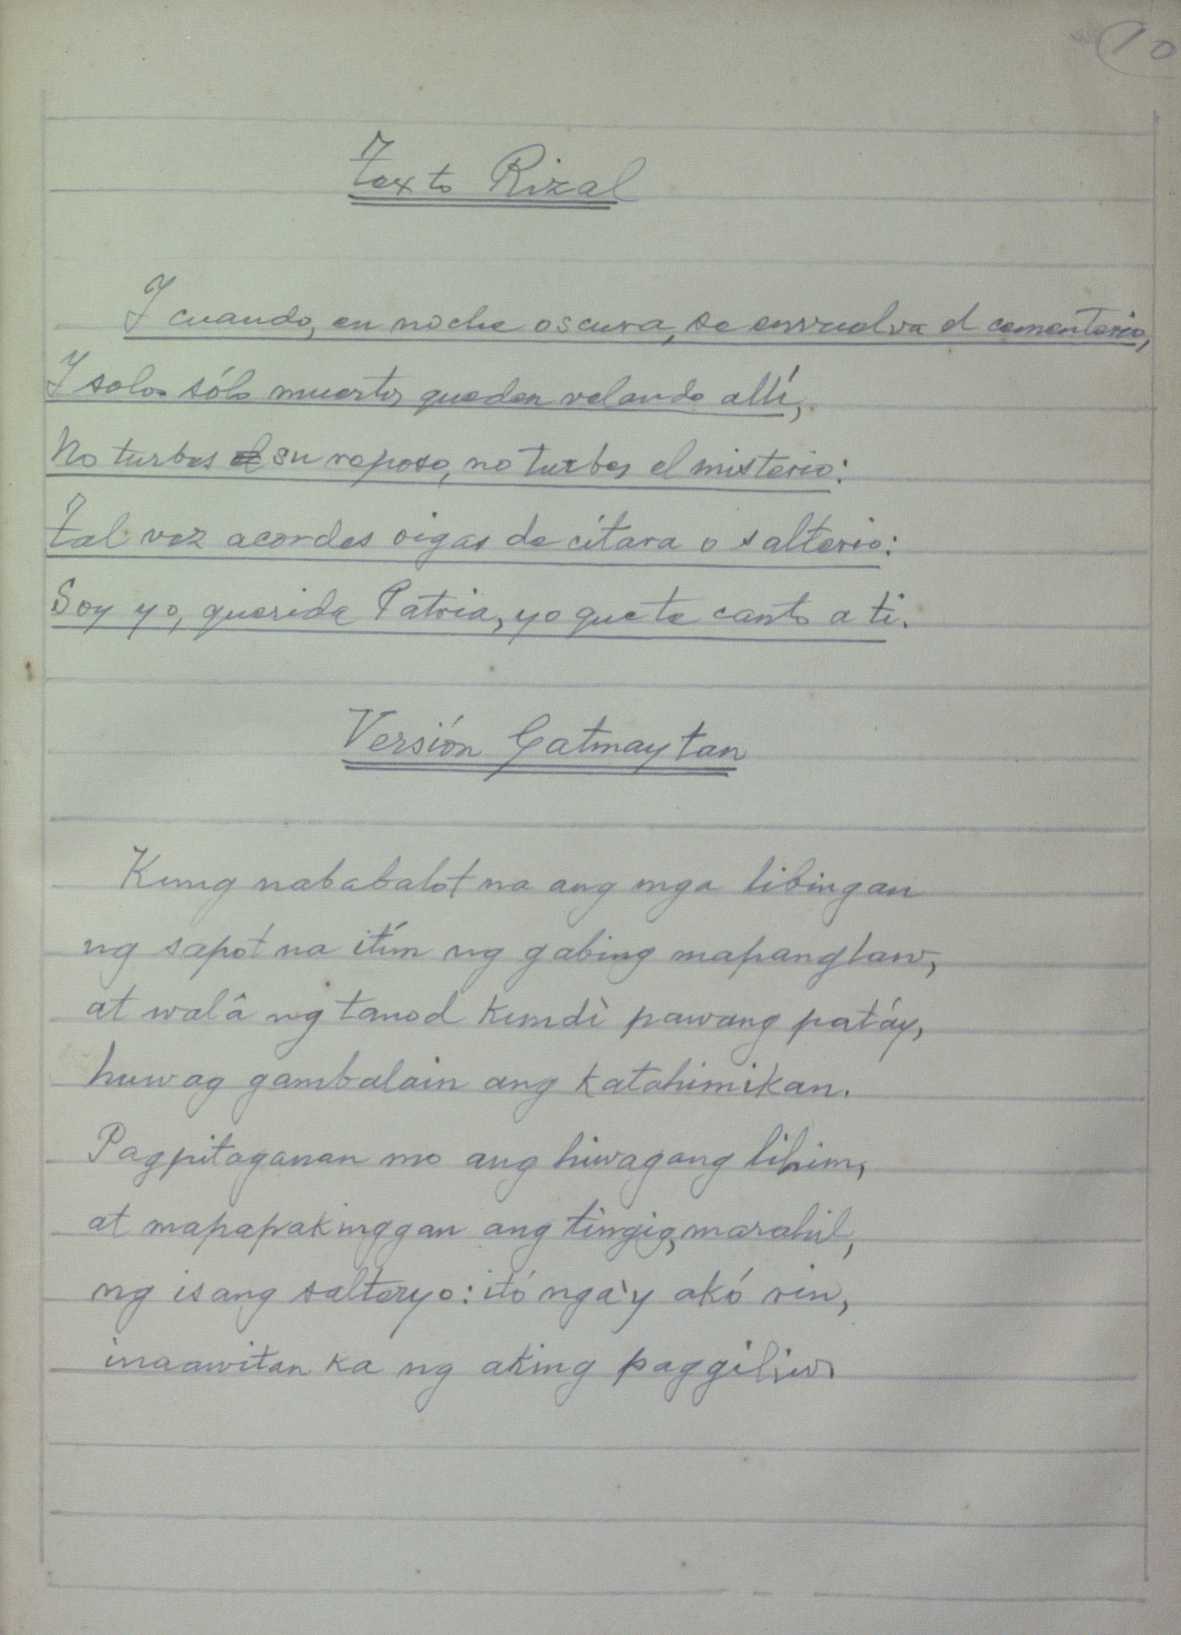 10
Texto Rizal
Y cuando, en noche oscura, se envuelva el cementerio,
Y solos sólo muertos queden velando allí,
No turbes el su reposo, no turbes el misterio:
Tal vez acordes oigas de cítara o salterio:
Soy yo, querida Patria, yo que te canto a ti.
Versión Gatmaytan
Kung nababalot na ang mga libingan
ng sapot na itím ng gabing mapanglaw,
at walâ ng tanod kundì pawang patáy,
huwag gambalain ang katahimikan.
Pagpitaganan mo ang hiwagang lihim,
at mapapakinggan ang tingig, marahil,
ng isang salteryo: itó nga'y akó rin,
inaawitan ka ng aking paggiliw.